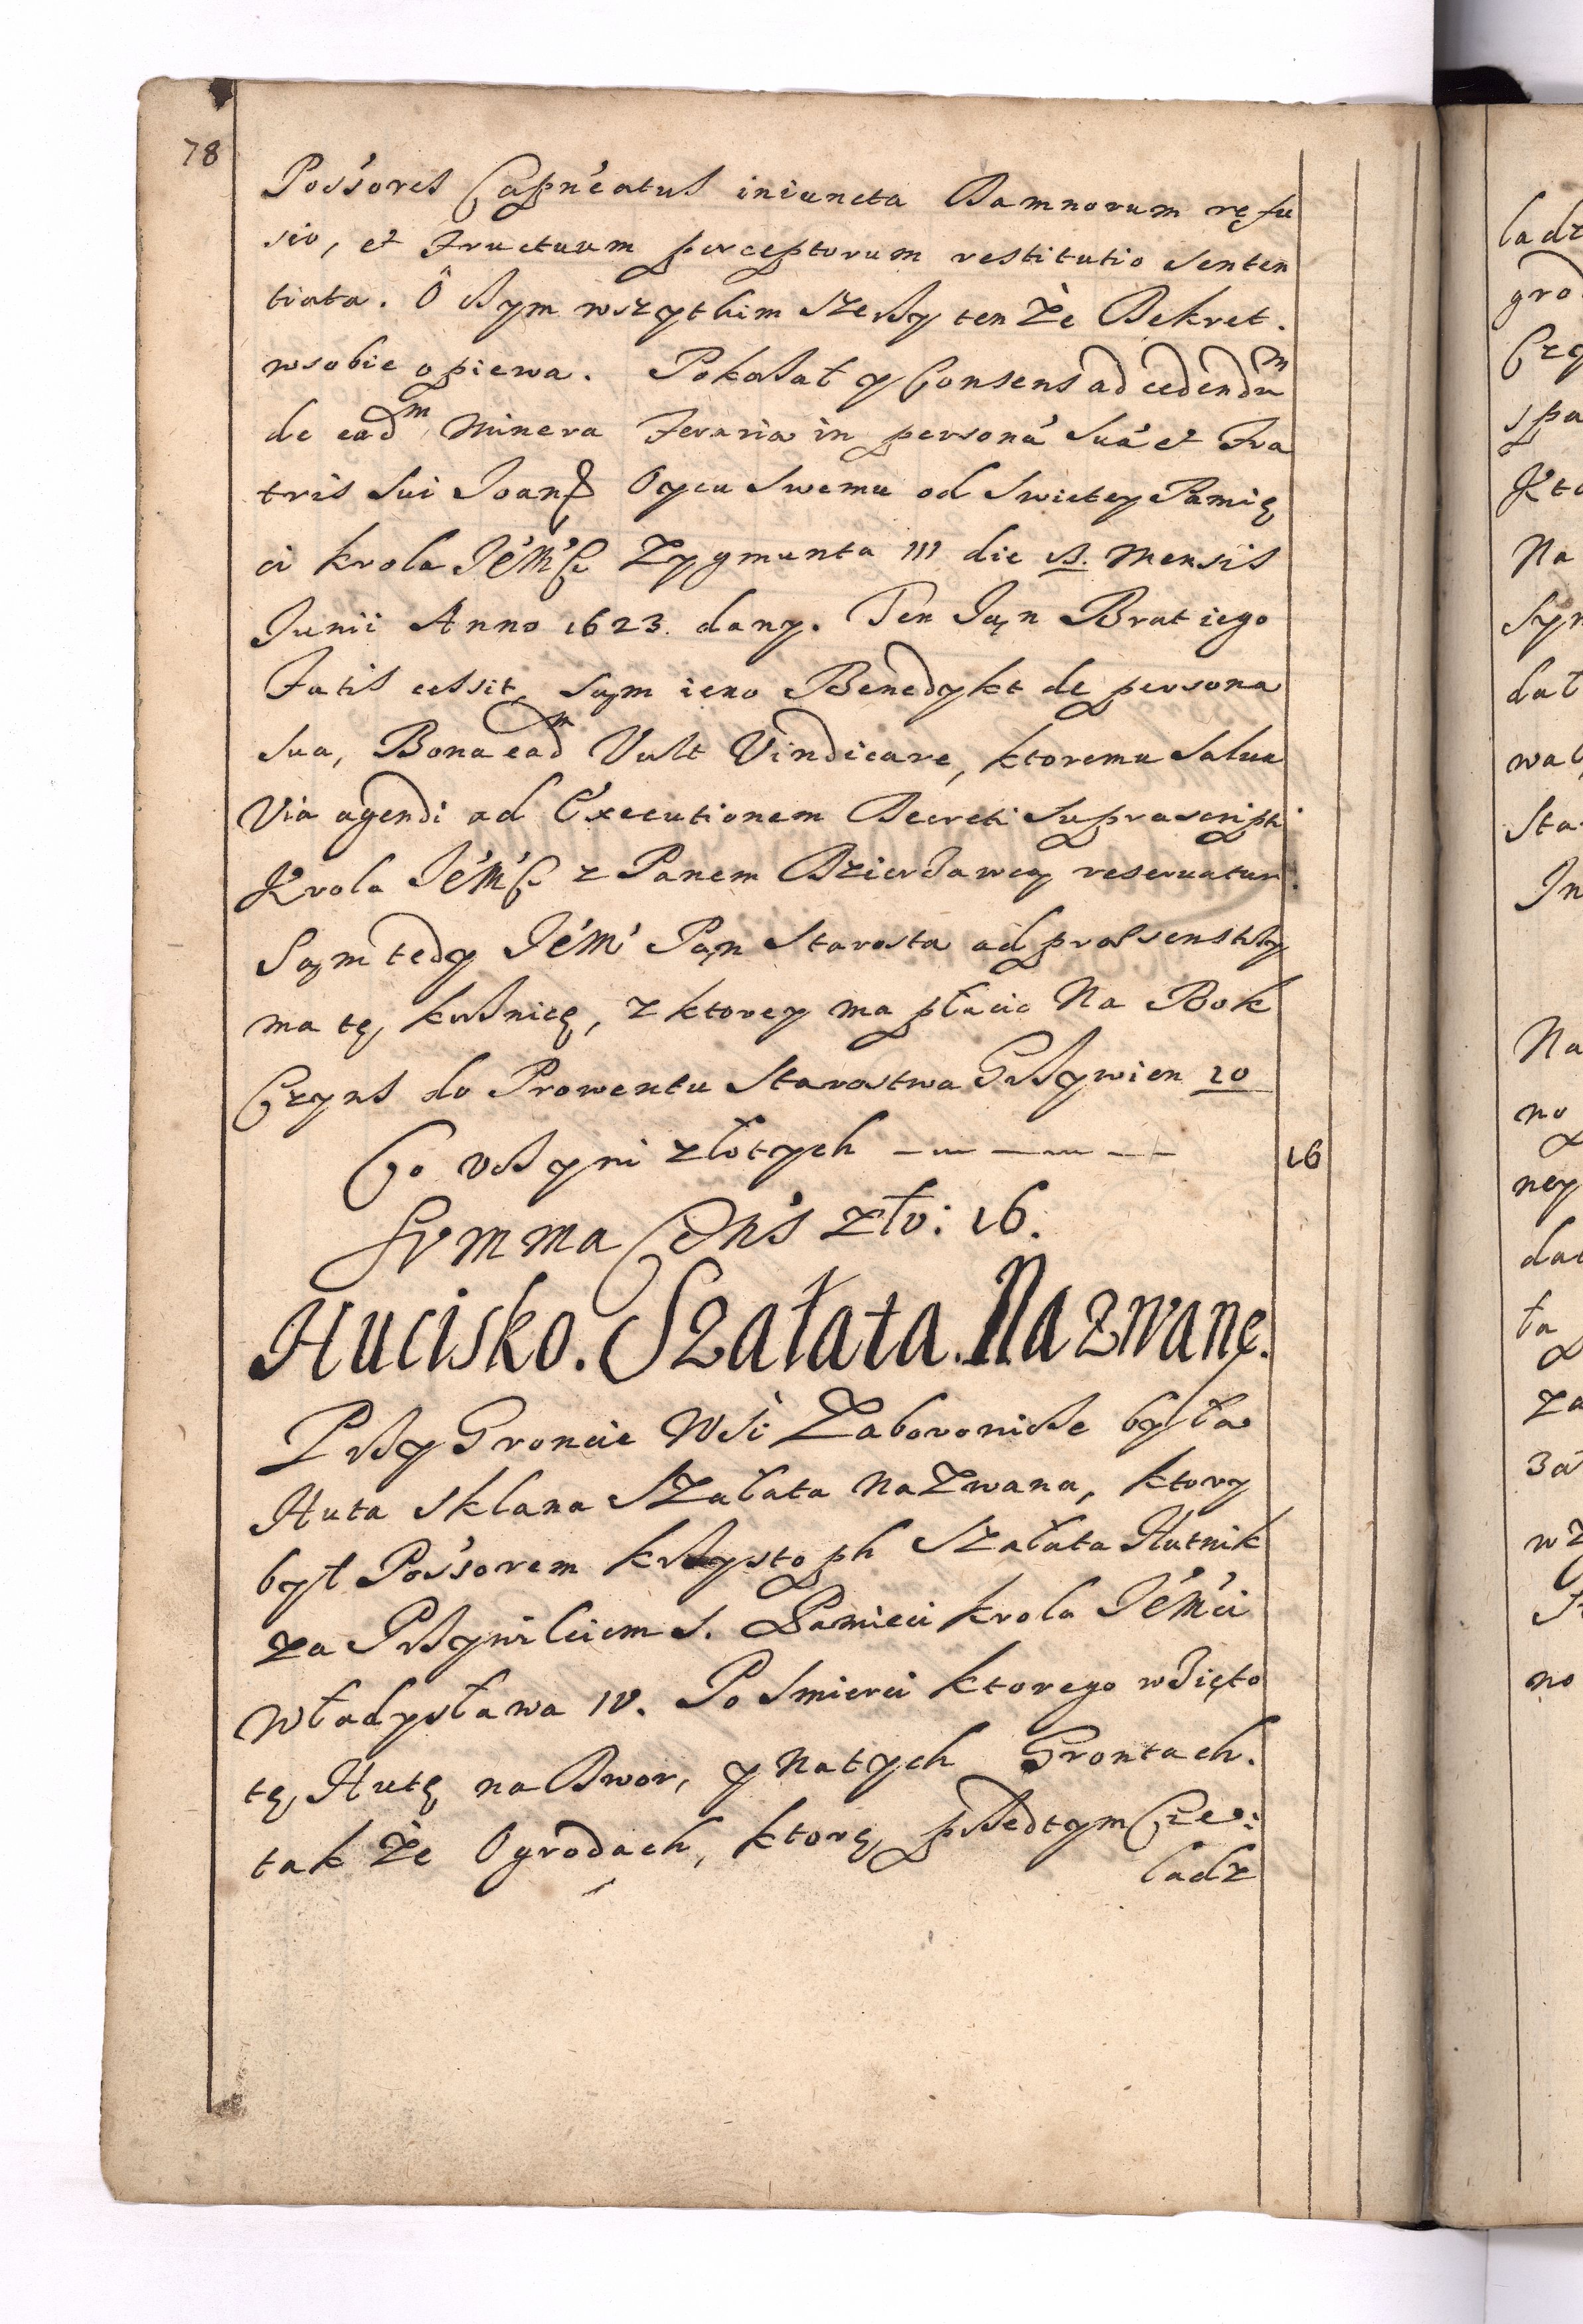 78
Pos'sores Capn'eatus iniuncta Damnorum refu
sio, et Fructuum perceptorum restitutio senten
tiata. O czym wszytkim szerzy ten że Dekret.
wsobie opiewa. Pokazał y Consens ad cedendu^m
de ead^m Minera Feraria in personá suá et Fra
tris sui Joan Oycu swemu od Swietey Pamię
ci krola Jé'M'C Zygmunta III die 13. Mensis
Junii Anno 1623. dany. Ten Jan Brat iego
Fatis cessit, sam ieno Benedykt de persona
sua, Bona ead^m Vult Vindicare, ktoremu salua
Via agendi ad Executionem Decreti suprascripti
Krola Jé'M'C z Panem Dzierzawcą reseruatur.
Sam tedy Jé'M' Pan Starosta ad praesens trzy
ma tę kuźnicę, z ktorey ma płacic Na Rok
Czyns do Prowentu Starostwa Grzywien 10
Co vczyni złotych — — — — 16
Summa Cen's zło: 16.
Hucisko. Szałata. Nazwane.
Przy Groncie Wsi Zaboronicze była
Huta sklana Szałata nazwana, ktory
był Pos'sorem krzysztoph Szałata Hutnik
za Przywileiem S. Pamieci krola Jé'M'ci
Władysława IV. Po smierci ktorego wzięto
tę Hutę na Dwor, y natych Grontach.
tak że Ogrodach, ktore przedtym Cze:
ladz
ladz
gro
Czy
spa
Kto
Na
Syn
dał
wal
Sta
In
Na
no
ney
dać
ta
za
3á
wz
no